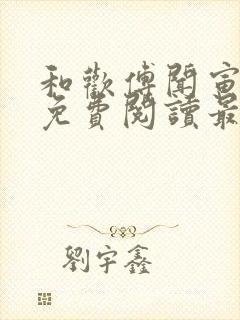 和歡傅聞甯
免費閱讀最
劉宇鑫